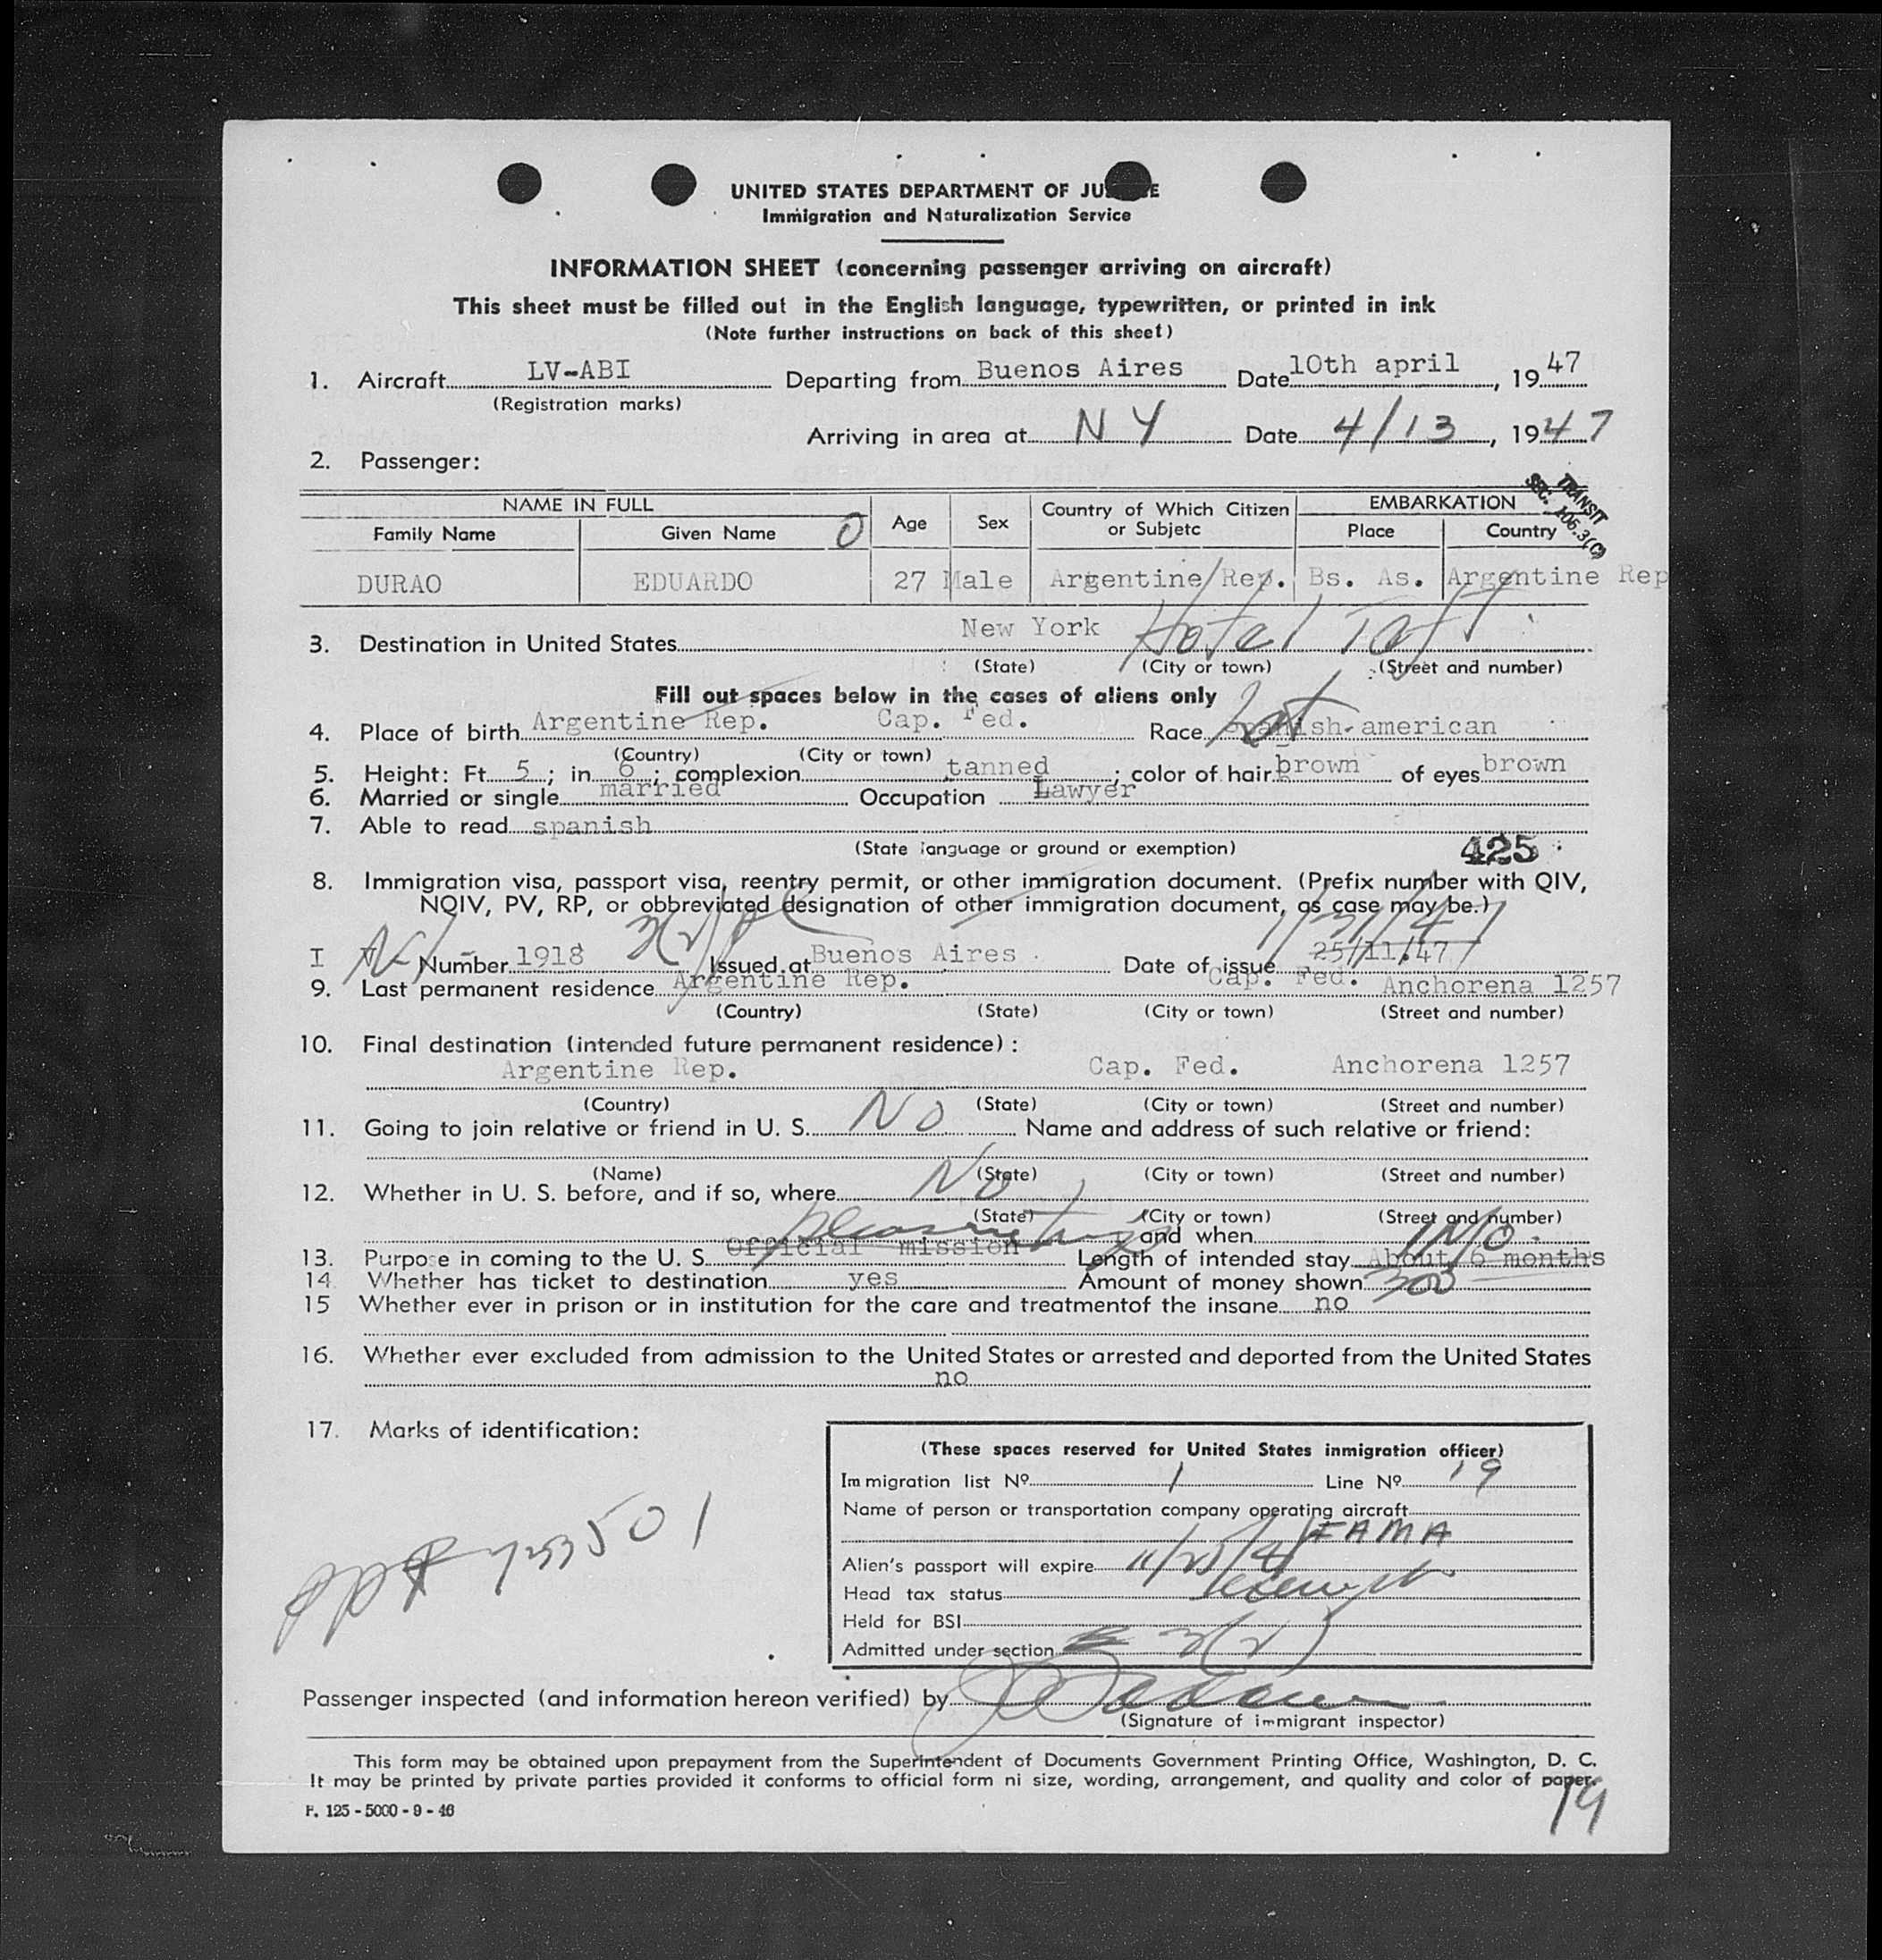 UNITED STATES DEPARTMENT OF JU E
Immigration and Naturalization Service
INFORMATION SHEET (concerning passenger arriving on aircraft)
This sheet must be filled out in the English language, typewritten, or printed in ink
(Note further instructions on back of this sheet)
1. Aircraft LV-ABI Departing from Buenos Aires Date 10th april, 1947
(Registration marks)
Arriving in area at NY Date 4/13, 1947
2. Passenger:
TRANSIT
SEC. 105.3(C)
NAME IN FULL Age Sex Country of Which Citizen or Subjetc EMBARKATION
Family Name Given Name O Place Country
DURAO EDUARDO 27 Male Argentine Rep. Bs. As. Argentine Rep
3. Destination in United States New York Hotel Taft
(State) (City or town) (Street and number)
Fill out spaces below in the cases of aliens only
4. Place of birth Argentine Rep. Cap. Fed. Race Spanish-american
(Country) (City or town)
5. Height: Ft. 5; in 6; complexion tanned; color of hair brown of eyes brown
6. Married or single married Occupation Lawyer
7. Able to read spanish
(State language or ground or exemption)
425
8. Immigration visa, passport visa, reentry permit, or other immigration document. (Prefix number with QIV,
NQIV, PV, RP, or obbreviated designation of other immigration document, as case may be.)
Number 1918 Issued at Buenos Aires Date of issue 25/11/47
9. Last permanent residence Argentine Rep. Cap. Fed. Anchorena 1257
(Country) (State) (City or town) (Street and number)
10. Final destination (intended future permanent residence):
Argentine Rep. Cap. Fed. Anchorena 1257
(Country) (State) (City or town) (Street and number)
11. Going to join relative or friend in U. S. No Name and address of such relative or friend:
(Name) (State) (City or town) (Street and number)
12. Whether in U. S. before, and if so, where No
(State) (City or town) (Street and number)
and when
13. Purpose in coming to the U. S. Official mission Length of intended stay About 6 months
14 Whether has ticket to destination yes Amount of money shown 300
15 Whether ever in prison or in institution for the care and treatmentof the insane no
16. Whether ever excluded from admission to the United States or arrested and deported from the United States
no
17. Marks of identification:
(These spaces reserved for United States inmigration officer)
Immigration list Nº 1 Line Nº 19
Name of person or transportation company operating aircraft
FAMA
Alien's passport will expire
Head tax status exempt
Held for BSI
Admitted under section 3(2)
Passenger inspected (and information hereon verified) by
(Signature of immigrant inspector)
This form may be obtained upon prepayment from the Superintendent of Documents Government Printing Office, Washington, D. C.
It may be printed by private parties provided it conforms to official form ni size, wording, arrangement, and quality and color of paper.
F. 125 - 5000 - 9 - 46
19